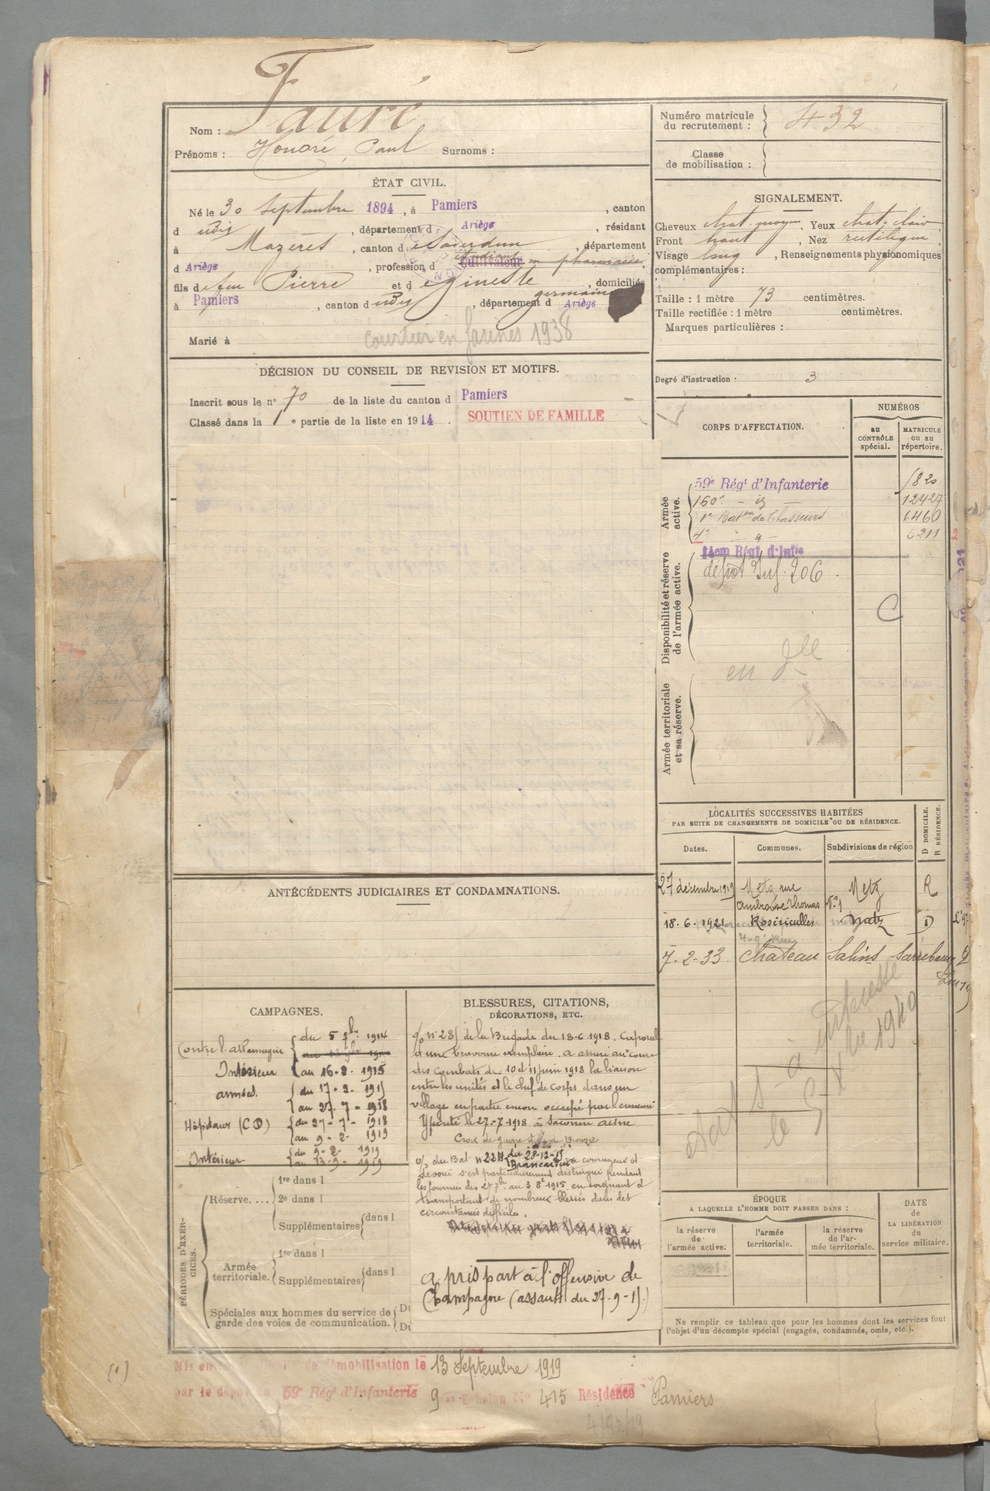 Nom : Fauré
Prénoms : Honoré, Paul Surnoms :
ÉTAT CIVIL.
Né le 30 Septembre 1894, à Pamiers, canton
d udis, département d Ariège, résidant
à Mazères, canton d e Saverdun, département
d Ariège, profession d Cultivateur étudiant en pharmacie,
fils d e feu Pierre et d e Gineste germaine, domiciliés
à Pamiers, canton d udis, département d Ariège
courtier en farines 1938
Marié à
DÉCISION DU CONSEIL DE REVISION ET MOTIFS.
Inscrit sous le n° 70 de la liste du canton d Pamiers
Classé dans la 1e partie de la liste en 1914. SOUTIEN DE FAMILLE
ANTÉCÉDENTS JUDICIAIRES ET CONDAMNATIONS.
CAMPAGNES.
Contre l'allemagne du 5 7bre 1914
Intérieur au 16-2-1915
armées du 17-2-1915
au 27-7-1918
Hôpitaux (CD) du 27-7-1918
au 9-2-1919
Intérieur du 9-2-1919
au 13-9-1919
PÉRIODES D'EXERCICES.
Réserve.... 1re dans l
2e dans l
Supplémentaires dans l
Armée territoriale. 1re dans l
Supplémentaires dans l
Spéciales aux hommes du service de garde des voies de communication. Du
Du
BLESSURES, CITATIONS,
DÉCORATIONS, ETC.
O/ n° 28 de la Brigade du 18-6-1918. Caporal
d'une bravoure exemplaire. a assuré au cours
des combats de 10 et 11 juin 1918 la liaison
entre les unités et le chef de corps dans un
village en partie encore occupé par l'ennemi
Ypérité le 27-7-1918 à
Croix de guerre
O/ du Bat n° 22 du 28-12-15
Brancardier courageux et
dévoué s'est particulièrement distingué pendant
les journées du 27 7bre au 3 8bre 1915, en soignant et
transportant de nombreux blessés dans des
circonstances difficiles.
a pris part à l'offensive de
Champagne (assaut du 27-9-15)
Numéro matricule du recrutement : 432
Classe de mobilisation :
SIGNALEMENT.
Cheveux chat. moyen, Yeux chat. clair
Front haut, Nez rectiligne,
Visage long, Renseignements physionomiques
complémentaires :
Taille : 1 mètre 73 centimètres.
Taille rectifiée : 1 mètre centimètres.
Marques particulières :
Degré d'instruction : 3
CORPS D'AFFECTATION.
NUMÉROS
au CONTRÔLE spécial.
MATRICULE ou au répertoire.
Armée active.
59e Régt d'Infanterie 1820
160e - id - 12427
1er Baton de Chasseurs 6460
4e - d - 5211
Disponibilité et réserve de l'armée active.
14em Régt d'Infie
dépôt Inf. 206
C
Armée territoriale et sa réserve.
LOCALITÉS SUCCESSIVES HABITÉES
PAR SUITE DE CHANGEMENTS DE DOMICILE OU DE RÉSIDENCE.
Dates. Communes. Subdivisions de région D DOMICILE. R RÉSIDENCE.
27 décembre 1919 Metz rue Ambroise Thomas N°1 Metz R
18-6-1921 Rozérieulles Metz D
7-2-33 Château Salins Sarrebourg D
ÉPOQUE
A LAQUELLE L'HOMME DOIT PASSER DANS :
la réserve de l'armée active.
l'armée territoriale.
la réserve de l'armée territoriale.
DATE de LA LIBÉRATION du service militaire.
Ne remplir ce tableau que pour les hommes dont les services font
l'objet d'un décompte spécial (engagés, condamnés, omis, etc.).
de démobilisation le 13 Septembre 1919
par le dépôt du 59e Régt d'Infanterie 9 Echelon N° 415 Résidence Pamiers